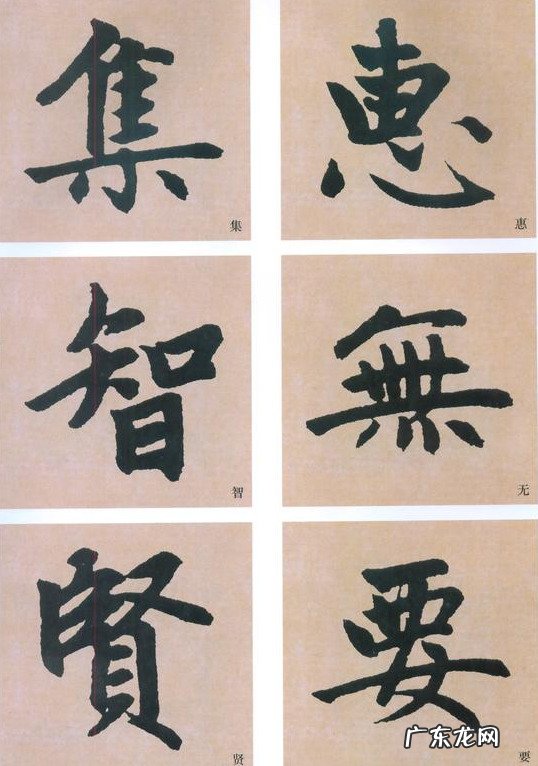 集
集
惠
惠
智
智
無
无
賢
贤
要
要
广东龙网